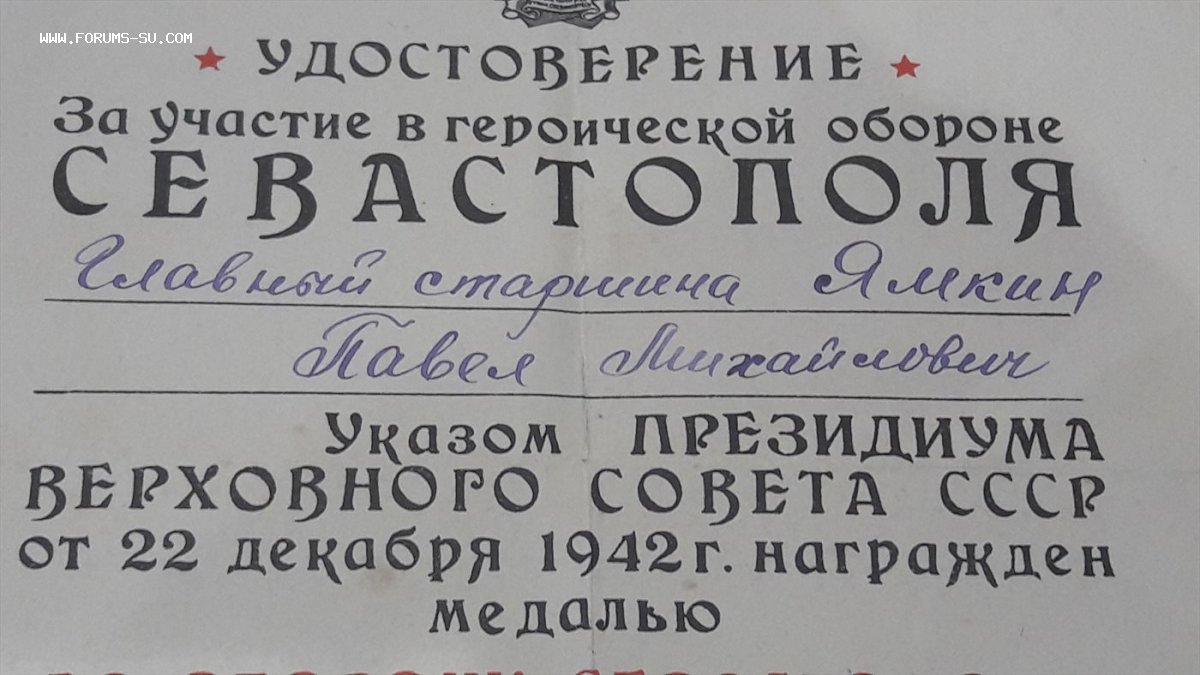 WWW.FORUMS-SU.COM
УДОСТОВЕРЕНИЕ
За участие в героической обороне
СЕВАСТОПОЛЯ
Главный старшина Ямкин
Павел Михайлович
Указом ПРЕЗИДИУМА
ВЕРХОВНОГО СОВЕТА СССР
от 22 декабря 1942 г. награжден
медалью